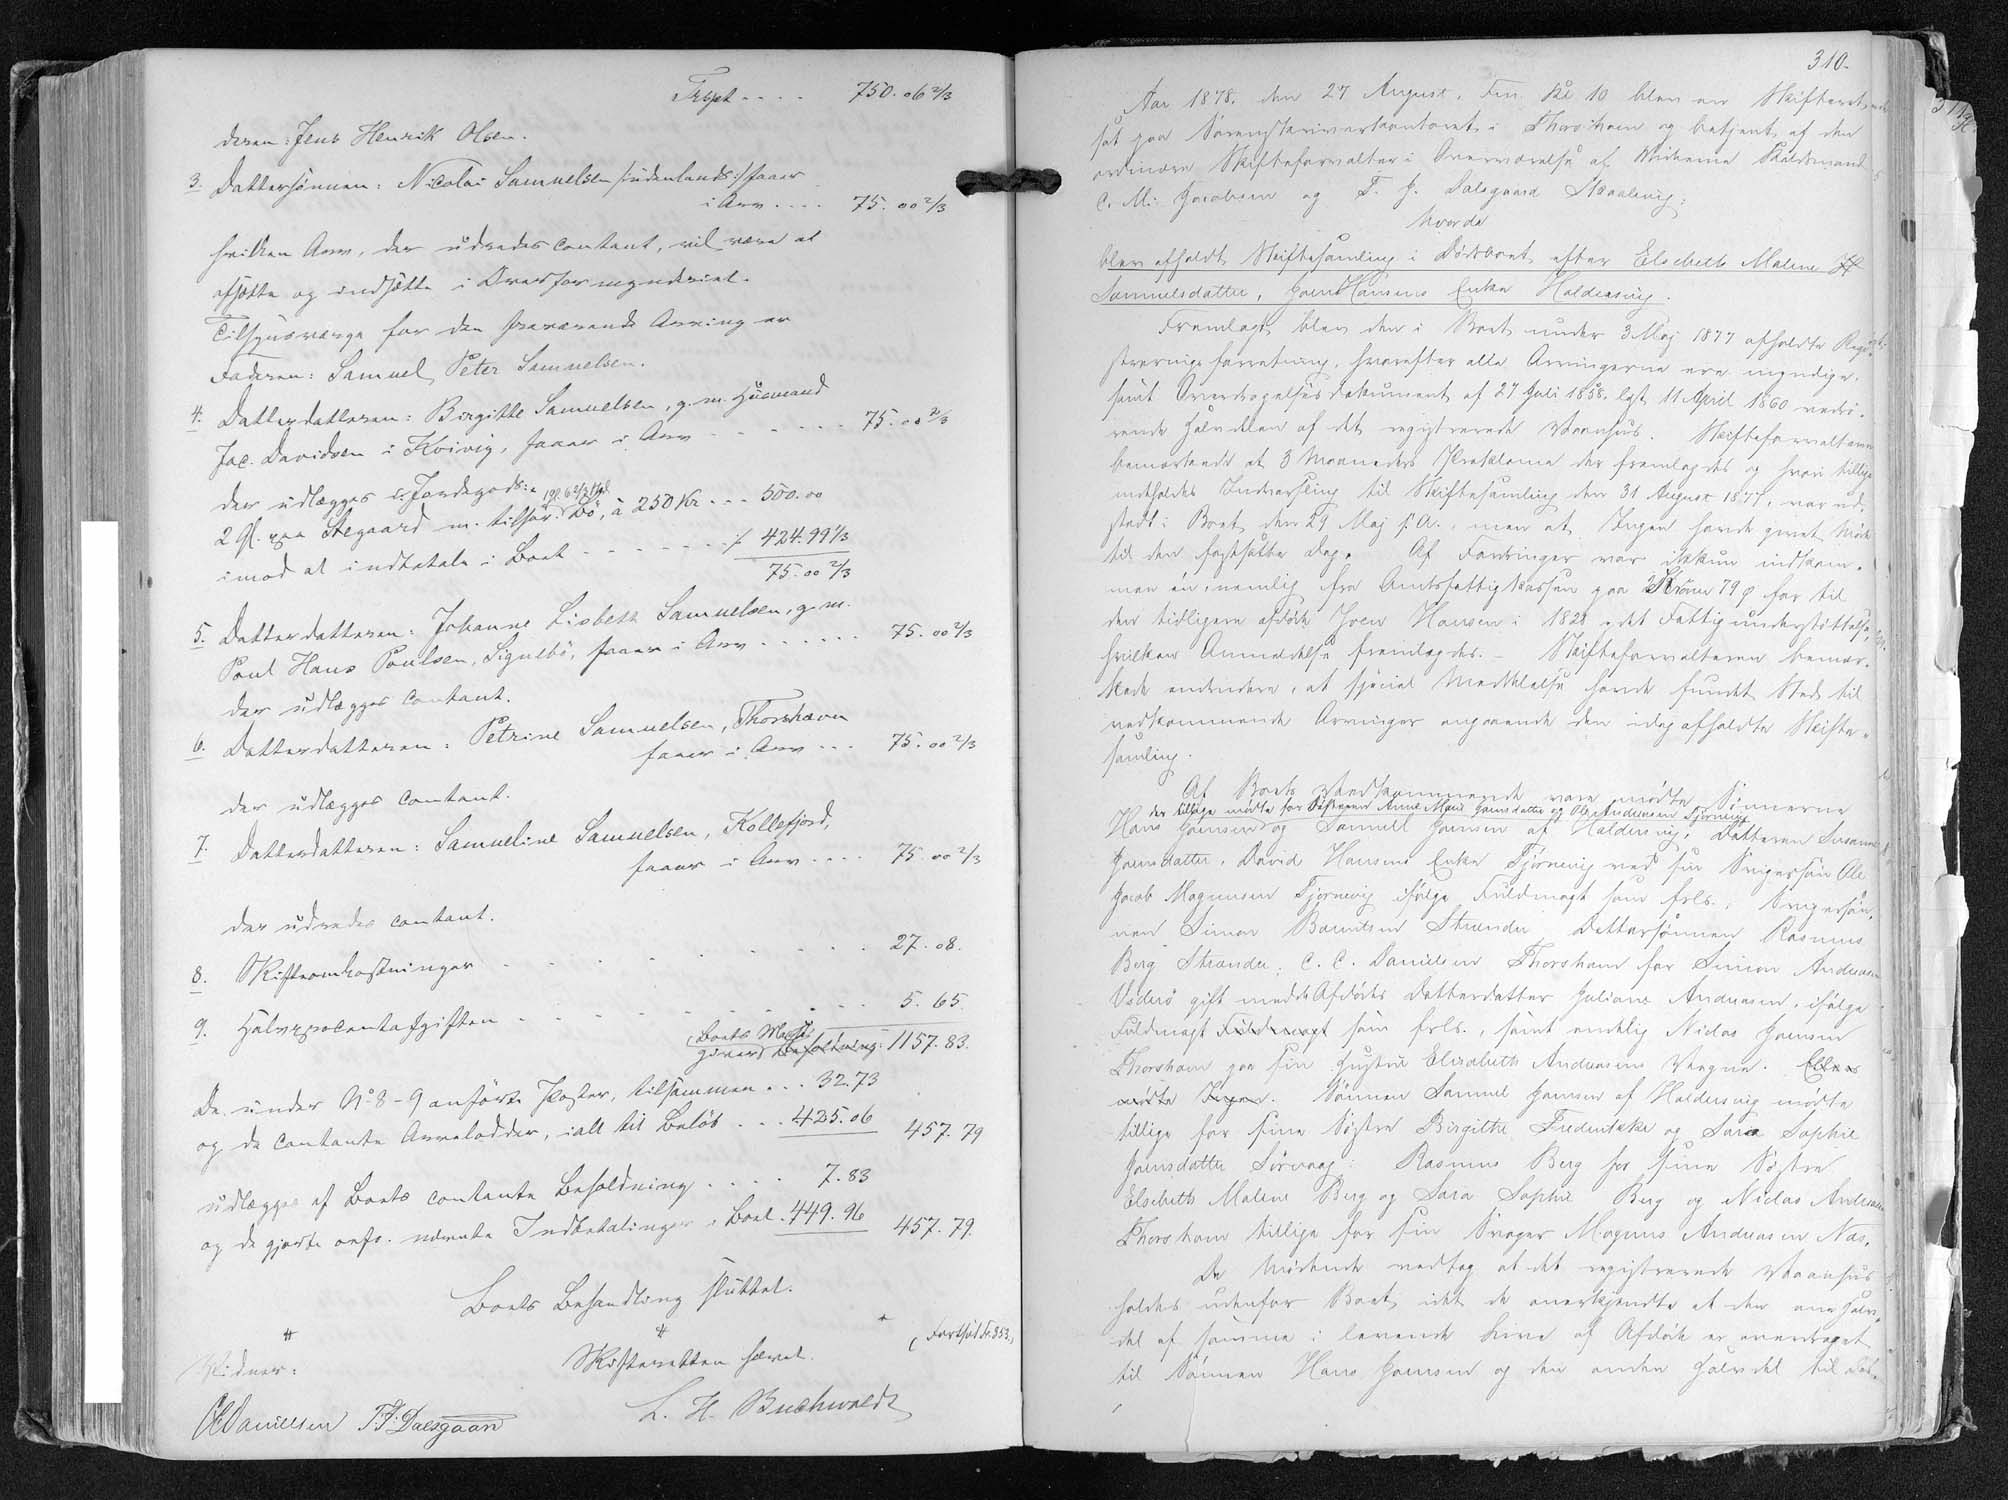 Trspt .... 750. 06 2/3
deren: Jens Henrik Olsen.
3. Dattersönnen: Nicolai Samuelsen /: udenlands :/ faaer
i Arv .... 75. 00 2/3
hvilken Arv, der udredes contant, vil være at
afsætte og indsætte i Overformynderiet.
Tilsynsværge for den fraværende Arving er
Faderen: Samuel Peter Samuelsen.
4. Datterdatteren: Birgitte Samuelsen, g. m. Huusmand
Jac. Davidsen i Kvivig, faaer i Arv ...... 75. 00 2/3
der udlægges i Jordegods:
2 Gl. paa Stegaard m. tilhør. Bö, à 250 Kr. ... 500. 00
imod at indbetale i Boet ....... ./. 424. 99 1/3
75. 00 2/3
5. Datterdatteren: Johanne Lisbeth Samuelsen, g. m.
Poul Hans Poulsen, Signebö, faaer i Arv ...... 75. 00 2/3
der udlægges contant.
6. Datterdatteren: Petrine Samuelsen, Thorshavn
faaer i Arv ... 75. 00 2/3
der udlægges contant.
7. Datterdatteren: Samueline Samuelsen, Kollefjord,
faaer i Arv .... 75. 00 2/3
der udredes contant.
8. Skifteomkostninger ........ 27. 08.
9. Halvprocentafgiften ......... 5. 65.
Boets Masse
1157. 83.
De under No 8-9 anførte Poster, tilsammen ... 32. 73
og de contante Arvelodder, i alt til Beløb ... 425. 06 457. 79
udlægges af Boets contante Beholdning .... 7. 83
og de gjorte ovfr. nævnte Indbetalinger i Boet . 449. 96 457. 79.
Boets Behandling sluttet.
(Forts. fol. 353.)
Skifteretten hævet.
Vidner:
L. H. Buchwaldt
C C Danielsen T. J. Dalsgaard
310.
Aar 1878. den 27 August, Fm. Kl 10 blev en Skifteret
sat paa Sorenskriverkontoret i Thorshavn og betjent af den
ordinære Skifteforvalter i Overværelse af Vidnerne
C. M. Jacobsen og T. J. Dalsgaard Skaalevig:
hvorda
blev afholdt Skiftesamling i Dødsboet efter Elsebeth Malene
Samuelsdatter, Joen Hansens Enke Haldersvig.
Fremlagt blev den i Boet under 3 Maj 1877 afholdte Regi-
streringsforretning, hvorefter alle Arvingerne ere myndige,
samt Overdragelsesdokument af 27 Juli 1858, læst 11 April 1860 vedrø-
rende Halvdelen af det registrerede Vaanhus. Skifteforvalteren
bemærkede at 3 Maaneders Proklama der fremlagdes og hvori tillige
indholdes Indvarsling til Skiftesamling den 31 August 1877, var ud-
stedt i Boet den 29 Maj f. A., men at Ingen havde givet Møde
til den fastsatte Dag. Af Fordringer var ikkun indkom-
men én, nemlig fra Amtsfattigkassen paa Kroner 79 Ø for til
den tidligere afdøde Joen Hansen i 1828 ydet Fattigunderstøttelse,
hvilken Anmeldelse fremlagdes. – Skifteforvalteren bemær-
kede endvidere, at special Meddelelse havde fundet Sted til
vedkommende Arvinger angaaende den idag afholdte Skifte-
samling.
Af Boets Vedkommende vare mødte Sønnerne
der tillige mødte for Søsteren Anne Marie Joensdatter og Ole Andreasen Tjørnevig
Hans Joensen og Samuel Joensen af Haldersvig, Datteren Susanne
Joensdatter, David Hansens Enke Tjørnevig ved sin Svigersøn Ole
Jacob Magnussen Tjørnevig ifølge Fuldmagt som frls., Svigersøn-
nen Simon Strænder, Dattersønnen Rasmus
Berg Strænder, C. C. Danielsen Thorshavn for Simon Andreasen
Viderø gift med Afdødes Datterdatter Juliane Andreasen, ifølge
Fuldmagt Fuldmagt som frls., samt endelig Niclas Joensen
Thorshavn paa sin Hustru Elisabeth Andreasens Vegne. Ellers
mødte Ingen. Sønnen Samuel Joensen af Haldersvig mødte
tillige for sine Søstre Birgitte Frederikke og Sara Sophie
Joensdatter Sørvaag: Rasmus Berg for sine Søstre
Elsebeth Malene Berg og Sara Sophie Berg og Niclas Andreasen
Thorshavn tillige for sin Svoger Magnus Andreasen Næs.
De Mødende vedtog at det registrerede Vaanhus
holdes udenfor Boet, idet de anerkjendte at den ene Halv-
del af samme i levende Live af Afdøde er overdraget
til Sønnen Hans Joensen og den anden Halvdel til